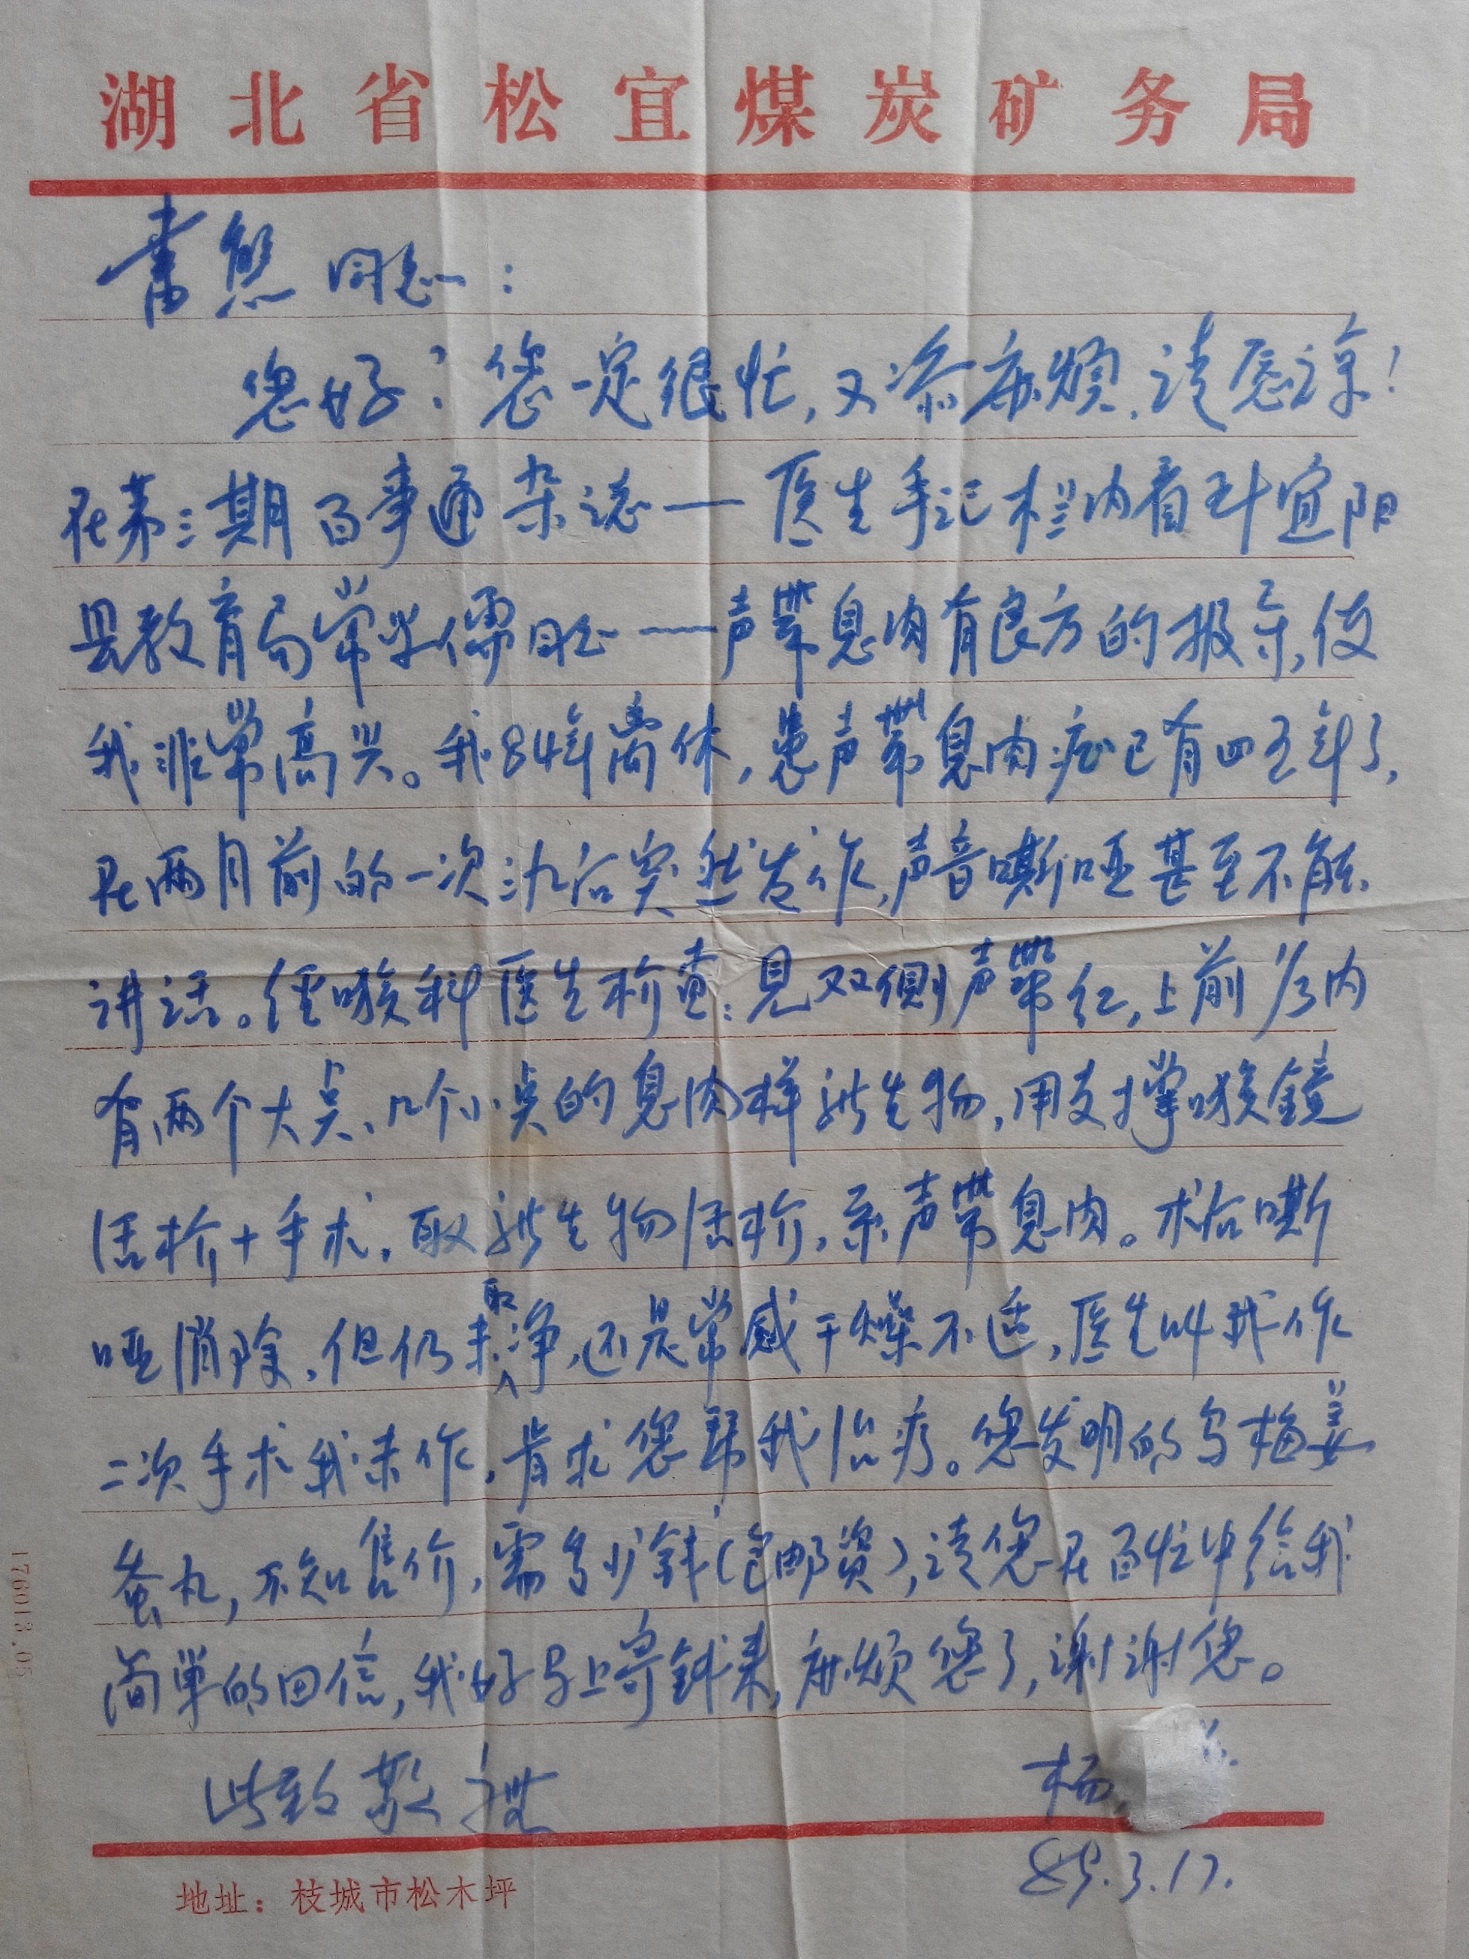 湖北省松宜煤炭矿务局
书熊同志:
您好!您一定很忙,又添麻烦,请原谅!
在第三期百事通杂志——医生手记栏内看到宜阳
县教育局常学儒同志——声带息肉有良方的报导,使
我非常高兴。我84年离休,患声带息肉症已有四五年了,
在两月前的一次 后突然发作,声音嘶哑甚至不能
讲话。经喉科医生检查:见双侧声带红,上前1/3内
有两个大点、几个小点的息肉样新生物,用支撑喉镜
活检十手术,取新生物活检,系声带息肉。术后嘶
哑消除,但仍未取净,还是常感干燥不适,医生叫我作
二次手术我未作,肯求您帮我治疗。您发明的乌梅姜
蚕丸,不知售价,需多少钱(包邮资),请您在百忙中给我
简单的回信,我好马上寄钱来,麻烦您了,谢谢您。
此致敬礼
杨
89.3.17.
地址:枝城市松木坪
176013.05